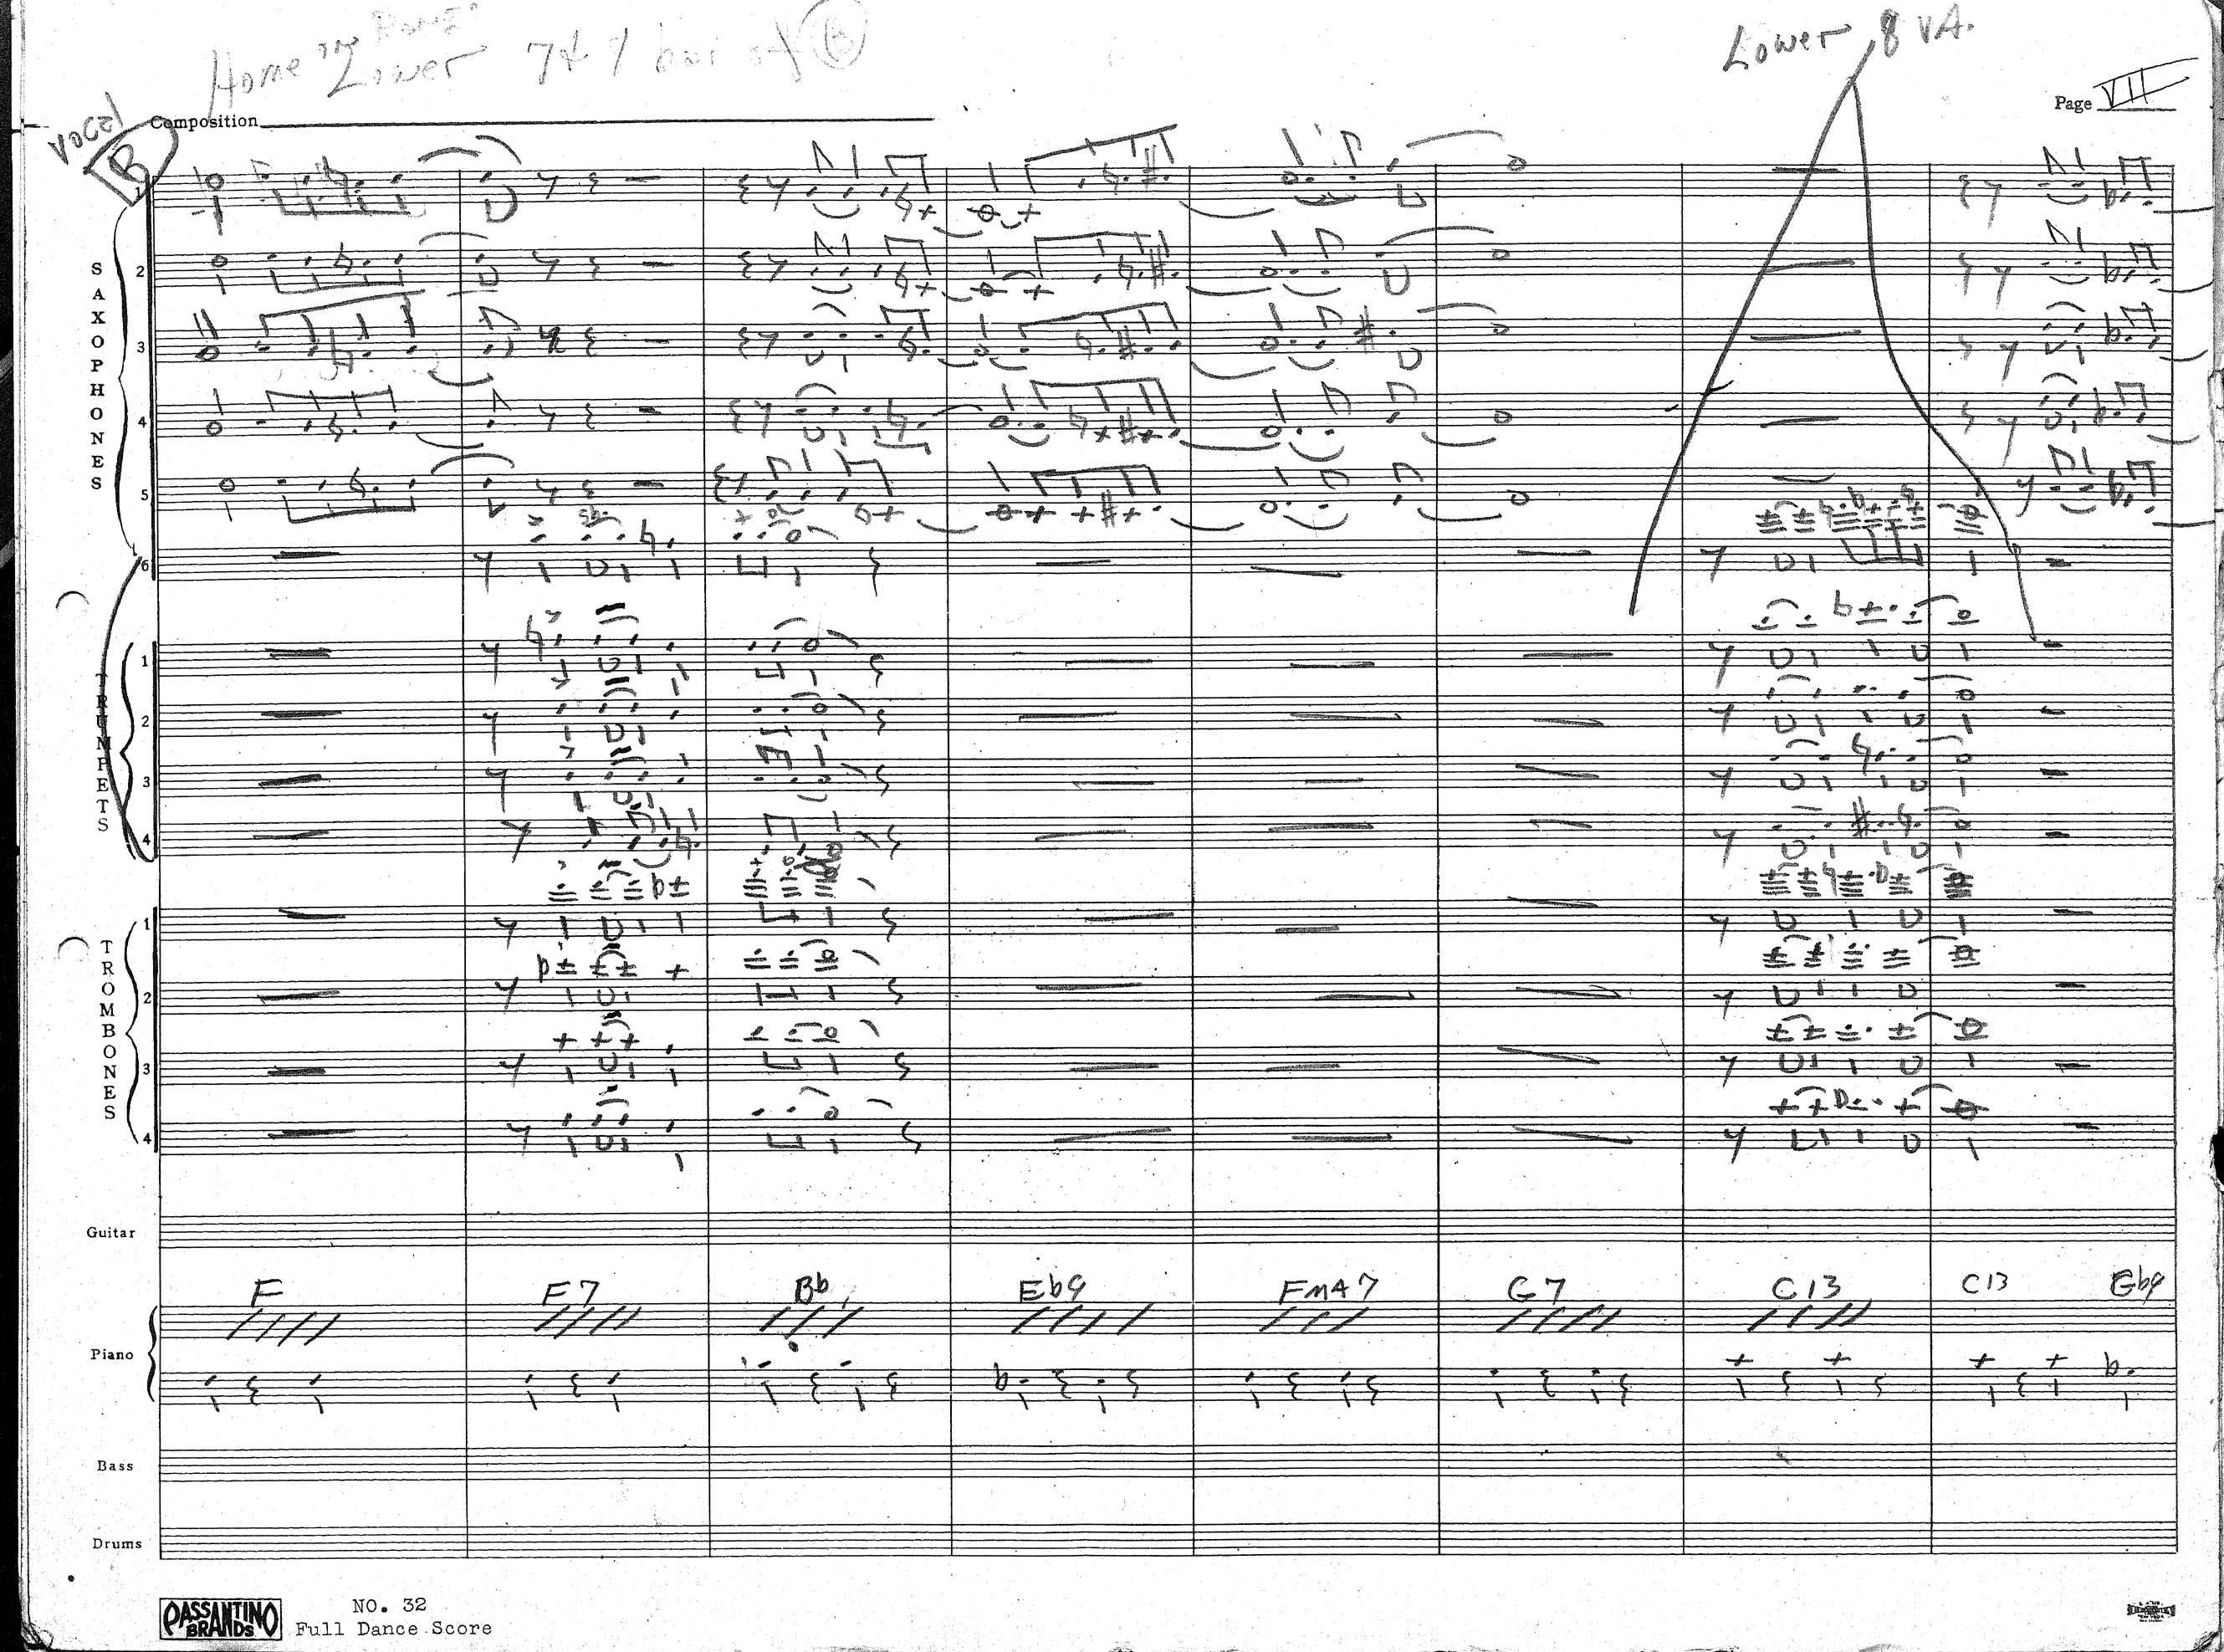 Home Lower 7th bar of B
Lower 8 VA.
Page VII
Composition
VOCAL
B
SAXOPHONES
1
2
3
4
5
6
TRUMPETS
1
2
3
4
TROMBONES
1
2
3
4
Guitar
F F7 Bb Eb9 FMA7 G7 C13 C13 Eb9
Piano
Bass
Drums
PASSANTINO BRANDS
NO. 32
Full Dance Score